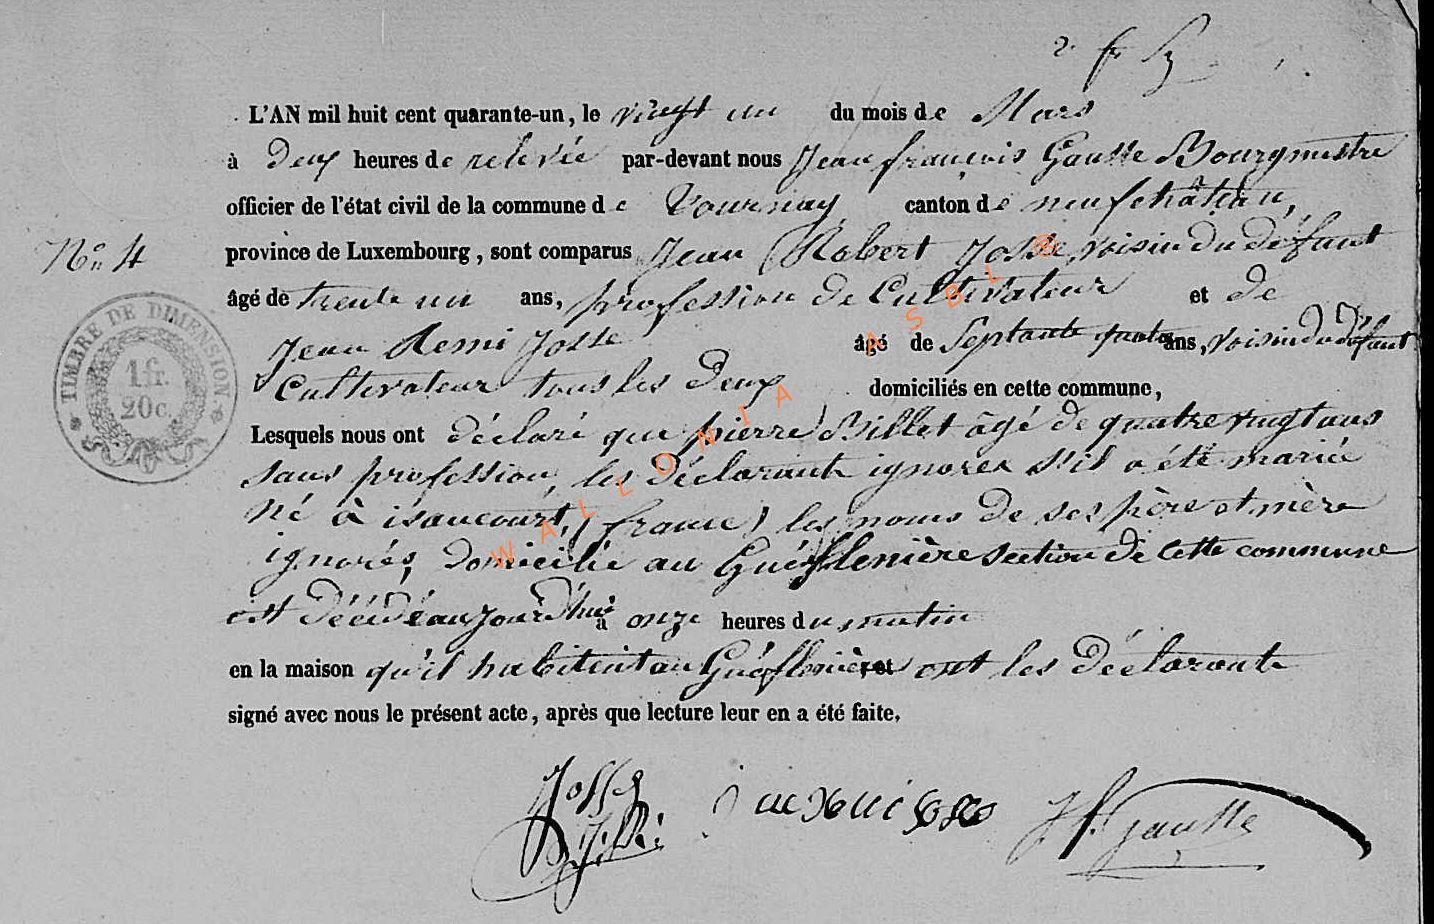 L'AN mil huit cent quarante-un, le vingt un du mois de Mars
à deux heures de relevée par-devant nous Jean françois Gausse Bourgmestre
officier de l'état civil de la commune de Tournay canton de neufchâteau,
N° 4
province de Luxembourg, sont comparus Jean Robert Josse, voisin du défunt
âgé de trente un ans, profession de Cultivateur et de
Jean Remi Josse âgé de Septante quatre ans, voisin du défunt
Cultivateur tous les deux domiciliés en cette commune,
Lesquels nous ont déclaré que pierre Billet âgé de quatre vingt ans
sans profession, les déclarants ignorer s'il a été mariée
né à isaucourt, (france) les noms de ses père et mère
ignorés, domicilié au section de cette commune
est décédé aujourd'hui à onze heures du matin
en la maison qu'il habitait au et ont les déclarants
signé avec nous le présent acte, après que lecture leur en a été faite.
TIMBRE DE DIMENSION
1 fr.
20 c.
WALLONIA ASBL ©
Josse
J. f. Gausse